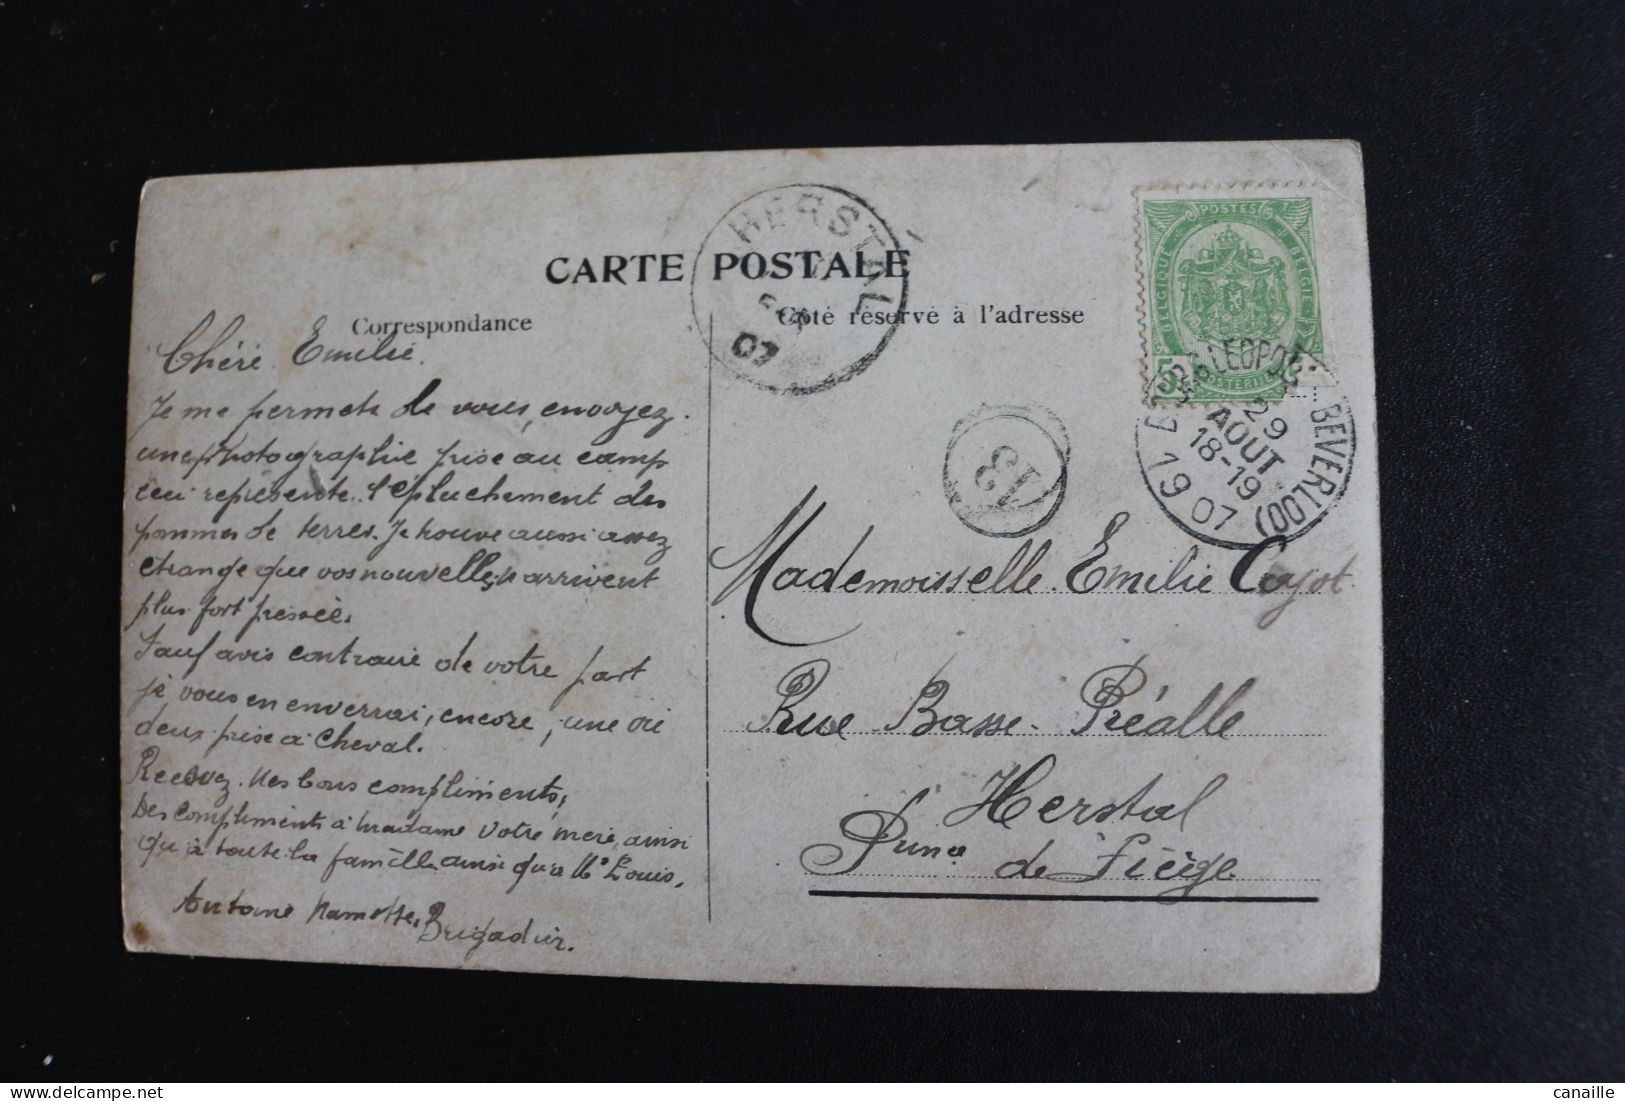 CARTE POSTALE
Correspondance
Côté réservé à l'adresse
HERSTAL
07
POSTES
BELGIQUE
BELGIË
5
LEOPOLD
BEVERLOO)
29
AOUT
18-19
1907
13
Chère Emilie.
Je me permets de vous, envoyez.
une photographie prise au camp
ceci représente l'épluchement des
pommes de terres. Je trouve aussi assez
étrange que vos nouvelles, n'arrivent
plus fort pressée.
Sauf avis contraire de votre part
je vous en enverrai, encore, une ou
deux prise à Cheval.
Recevez. Mes bons compliments,
Des compliments à madame votre mère, ainsi
qu'à toute la famille ainsi qu'a Mr Louis.
Antoine Brigadier.
Mademoisselle Emilie
Rue Basse-Préalle
Herstal
de Liège
canaille